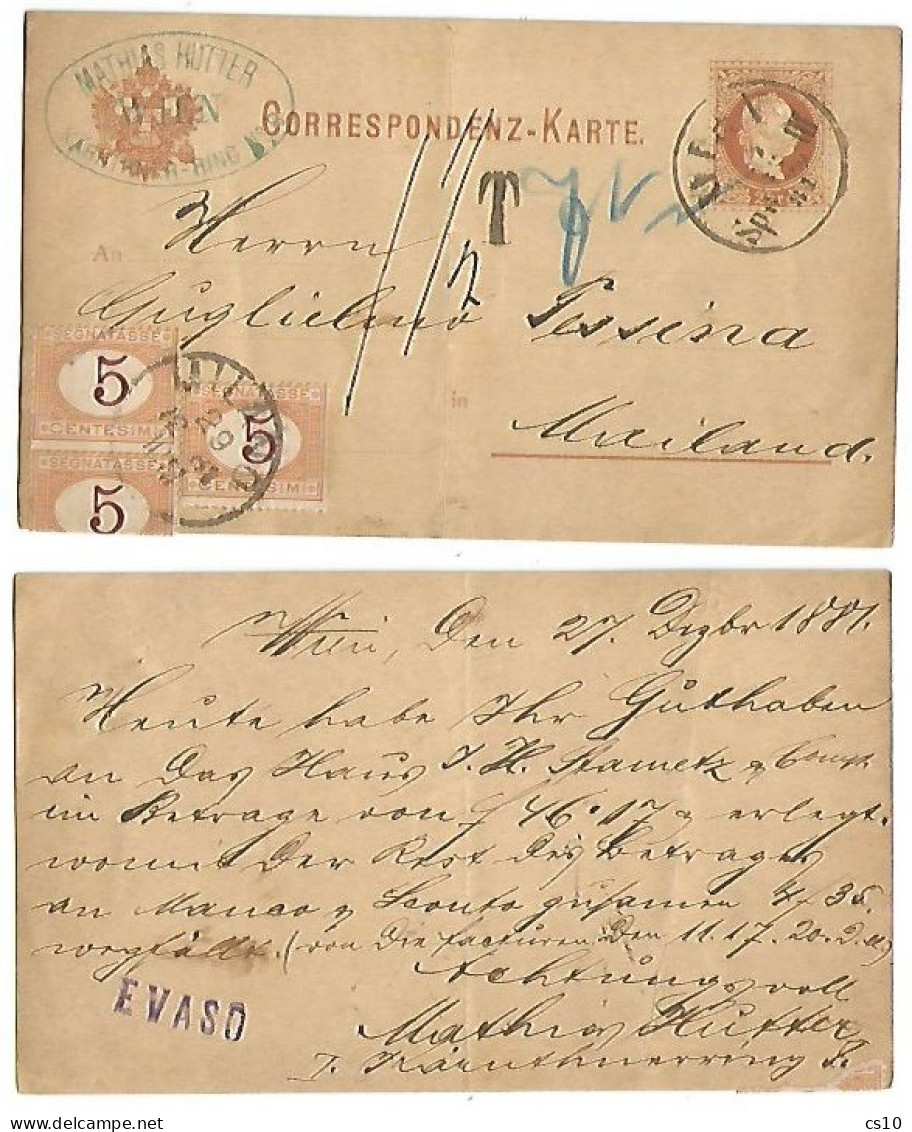 MATHIAS HUTTER
WIEN
KÄRNTHNER-RING Nº 8
CORRESPONDENZ-KARTE.
T
An
Herrn
Guglielmo Tessina
in
Mailand.
SEGNATASSE
5
CENTESIMI
SEGNATASSE
5
CENTESIMI
SEGNATASSE
5
MILANO
29
WIEN
Wien, Den 27. Dezbr 1881.
Heute habe Ihr Guthaben
an das Haus J. H. Stametz & Comp
im Betrage von f 46.17 erlegt.
womit der Rest des Betrages
an Manco & Sconto zusamen f 35.
wegfällt. (von die facturen Den 11. 17. 20. 2.
Achtungsvoll
EVASO
Mathias Hutter
I. Kärnthnerring 8.
cs10